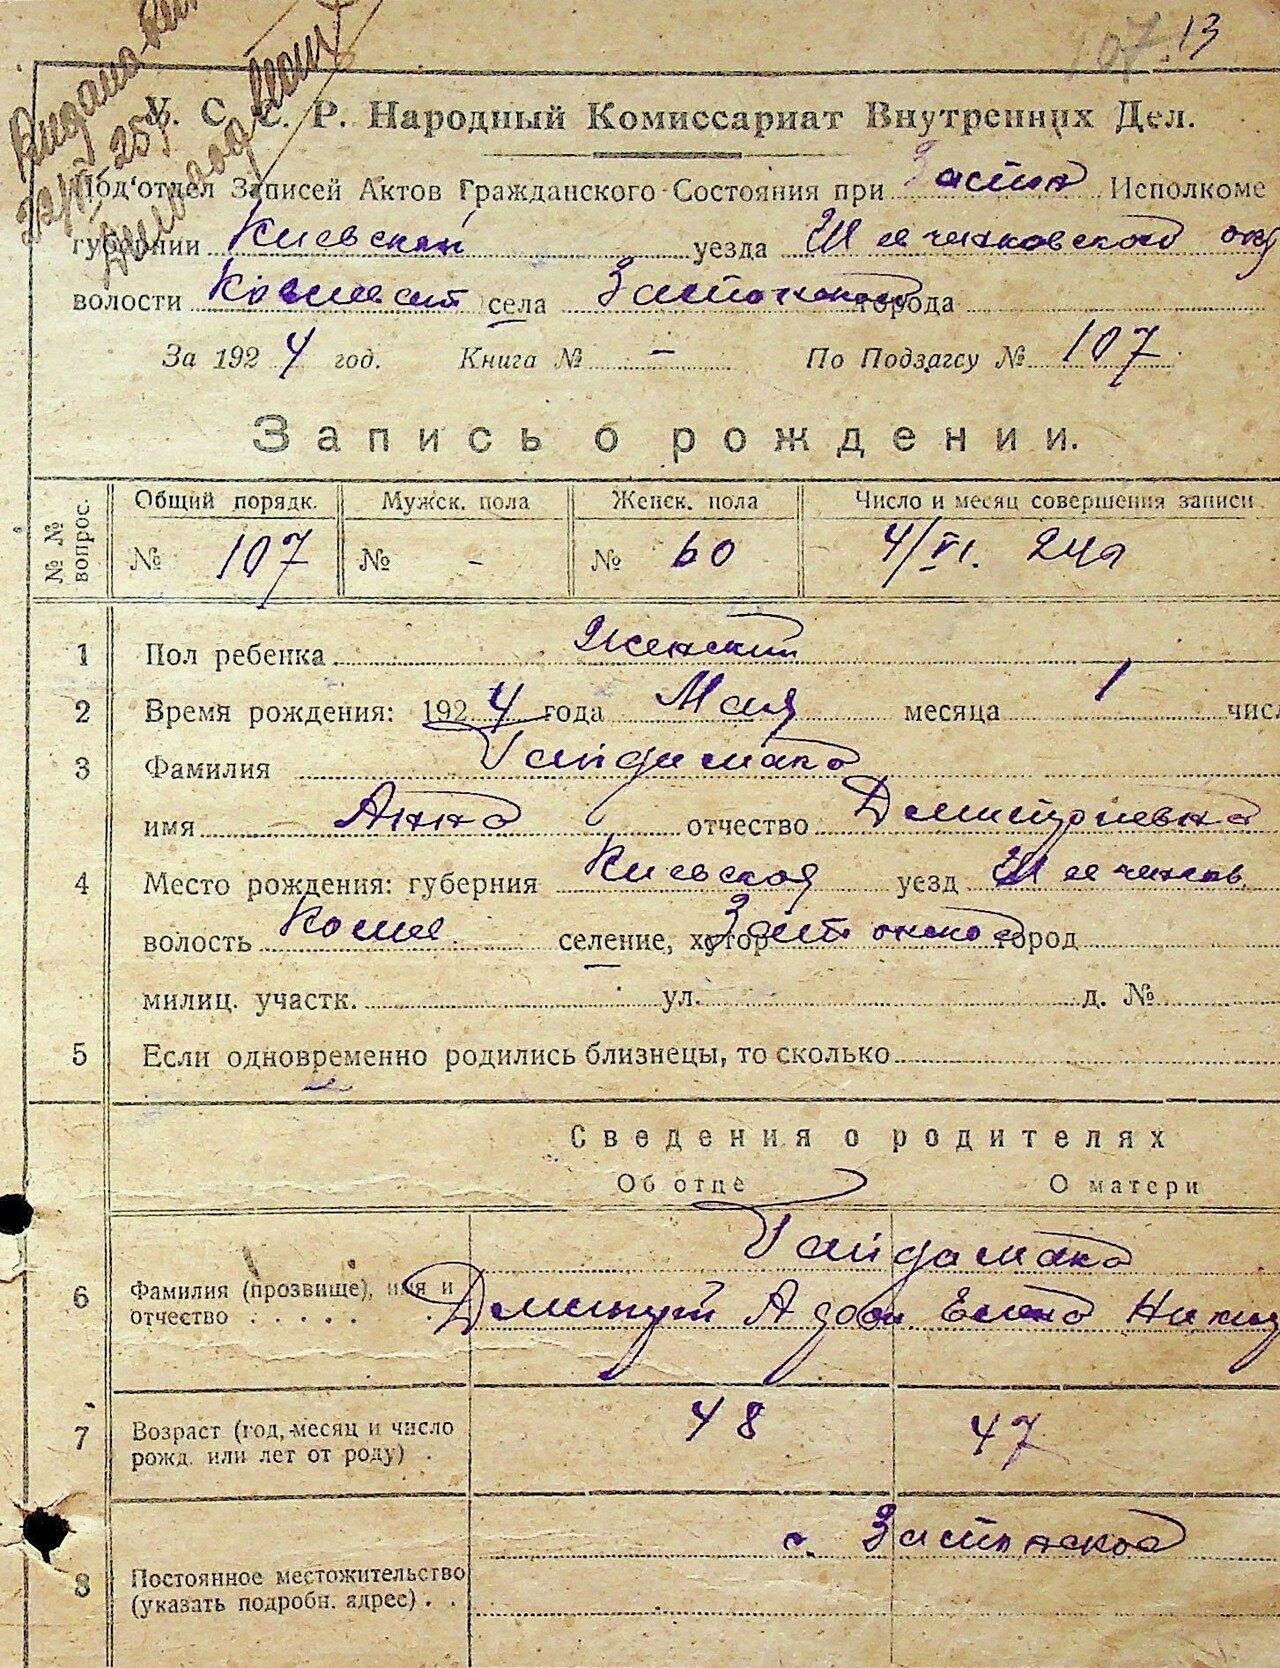 107. 13
У. С. С. Р. Народный Комиссариат Внутренних Дел.
Под'отдел Записей Актов Гражданского Состояния при Исполкоме
губернии Киевской уезда Шевченковской окр
волости села города
За 1924 год. Книга № - По Подзагсу № 107
Запись о рождении.
№ № вопрос.
Общий порядк. Мужск. пола Женск. пола Число и месяц совершения записи
№ 107 № - № 60 4/VI. 24 г
1 Пол ребенка Женский
2 Время рождения: 1924 года Мая месяца 1 числ
3 Фамилия Гайдамака
имя Анна отчество Дмитриевна
4 Место рождения: губерния Киевская уезд Шевченков.
волость селение, хутор город
милиц. участк. ул. д. №
5 Если одновременно родились близнецы, то сколько
Сведения о родителях
Об отце О матери
Гайдамака
6 Фамилия (прозвище), имя и
отчество Дмитрий Елена
7 Возраст (год, месяц и число 48 47
рожд. или лет от роду)
с.
8 Постоянное местожительство
(указать подробн. адрес)